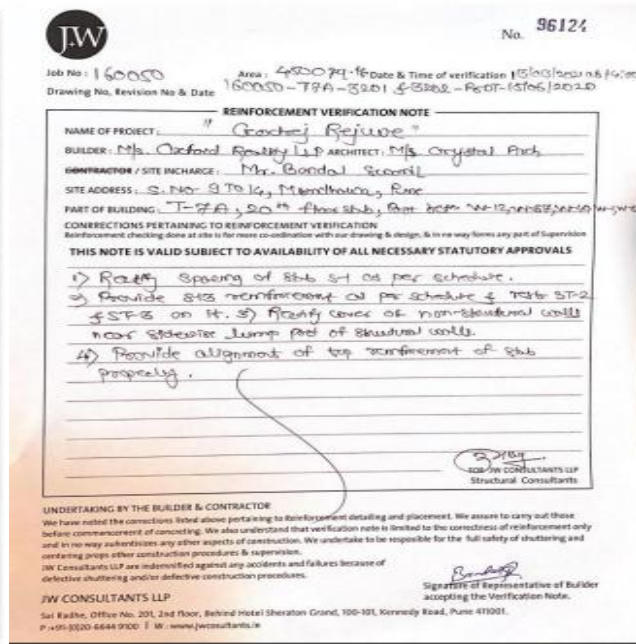 JW
No. 96124
Job No : 160050
Area :
Date & Time of verification
Drawing No, Revision No & Date 160050-T7A-3201 & 3202-
REINFORCEMENT VERIFICATION NOTE
NAME OF PROJECT : " Rejuve "
BUILDER : M/s. Oxford Realty LLP ARCHITECT : M/s Crystal Arch
CONTRACTOR / SITE INCHARGE : Mr. Bandal
SITE ADDRESS : S. No 9 To 14, Pune
PART OF BUILDING : T-7A, 20th floor slab,
CONRRECTIONS PERTAINING TO REINFORCEMENT VERIFICATION
Reinforcement checking done at site is for more co-ordination with our drawing & design, & in no way forms any part of Supervision
THIS NOTE IS VALID SUBJECT TO AVAILABILITY OF ALL NECESSARY STATUTORY APPROVALS
1) Rectify spacing of slab S-1 as per schedule.
2) Provide reinforcement as per schedule & ST-2
& ST-3 on it. 3) Rectify cover of non-structural walls
near sidewise part of structural walls.
4) Provide alignment of top reinforcement of slab
properly.
FOR JW CONSULTANTS LLP
Structural Consultants
UNDERTAKING BY THE BUILDER & CONTRACTOR
We have noted the corrections listed above pertaining to Reinforcement detailing and placement. We assure to carry out those
before commencement of concreting. We also understand that verification note is limited to the correctness of reinforcement only
and in no way authentisizes any other aspects of construction. We undertake to be responsible for the full safety of shuttering and
centering props other construction procedures & supervision.
JW Consultants LLP are indemnified against any accidents and failures because of
defective shuttering and/or defective construction procedures.
Signature of Representative of Builder
accepting the Verification Note.
JW CONSULTANTS LLP
Sai Radhe, Office No. 201, 2nd floor, Behind Hotel Sheraton Grand, 100-101, Kennedy Road, Pune 411001.
P :+91-(0)20-6644 9100 | W : www.jwconsultants.in